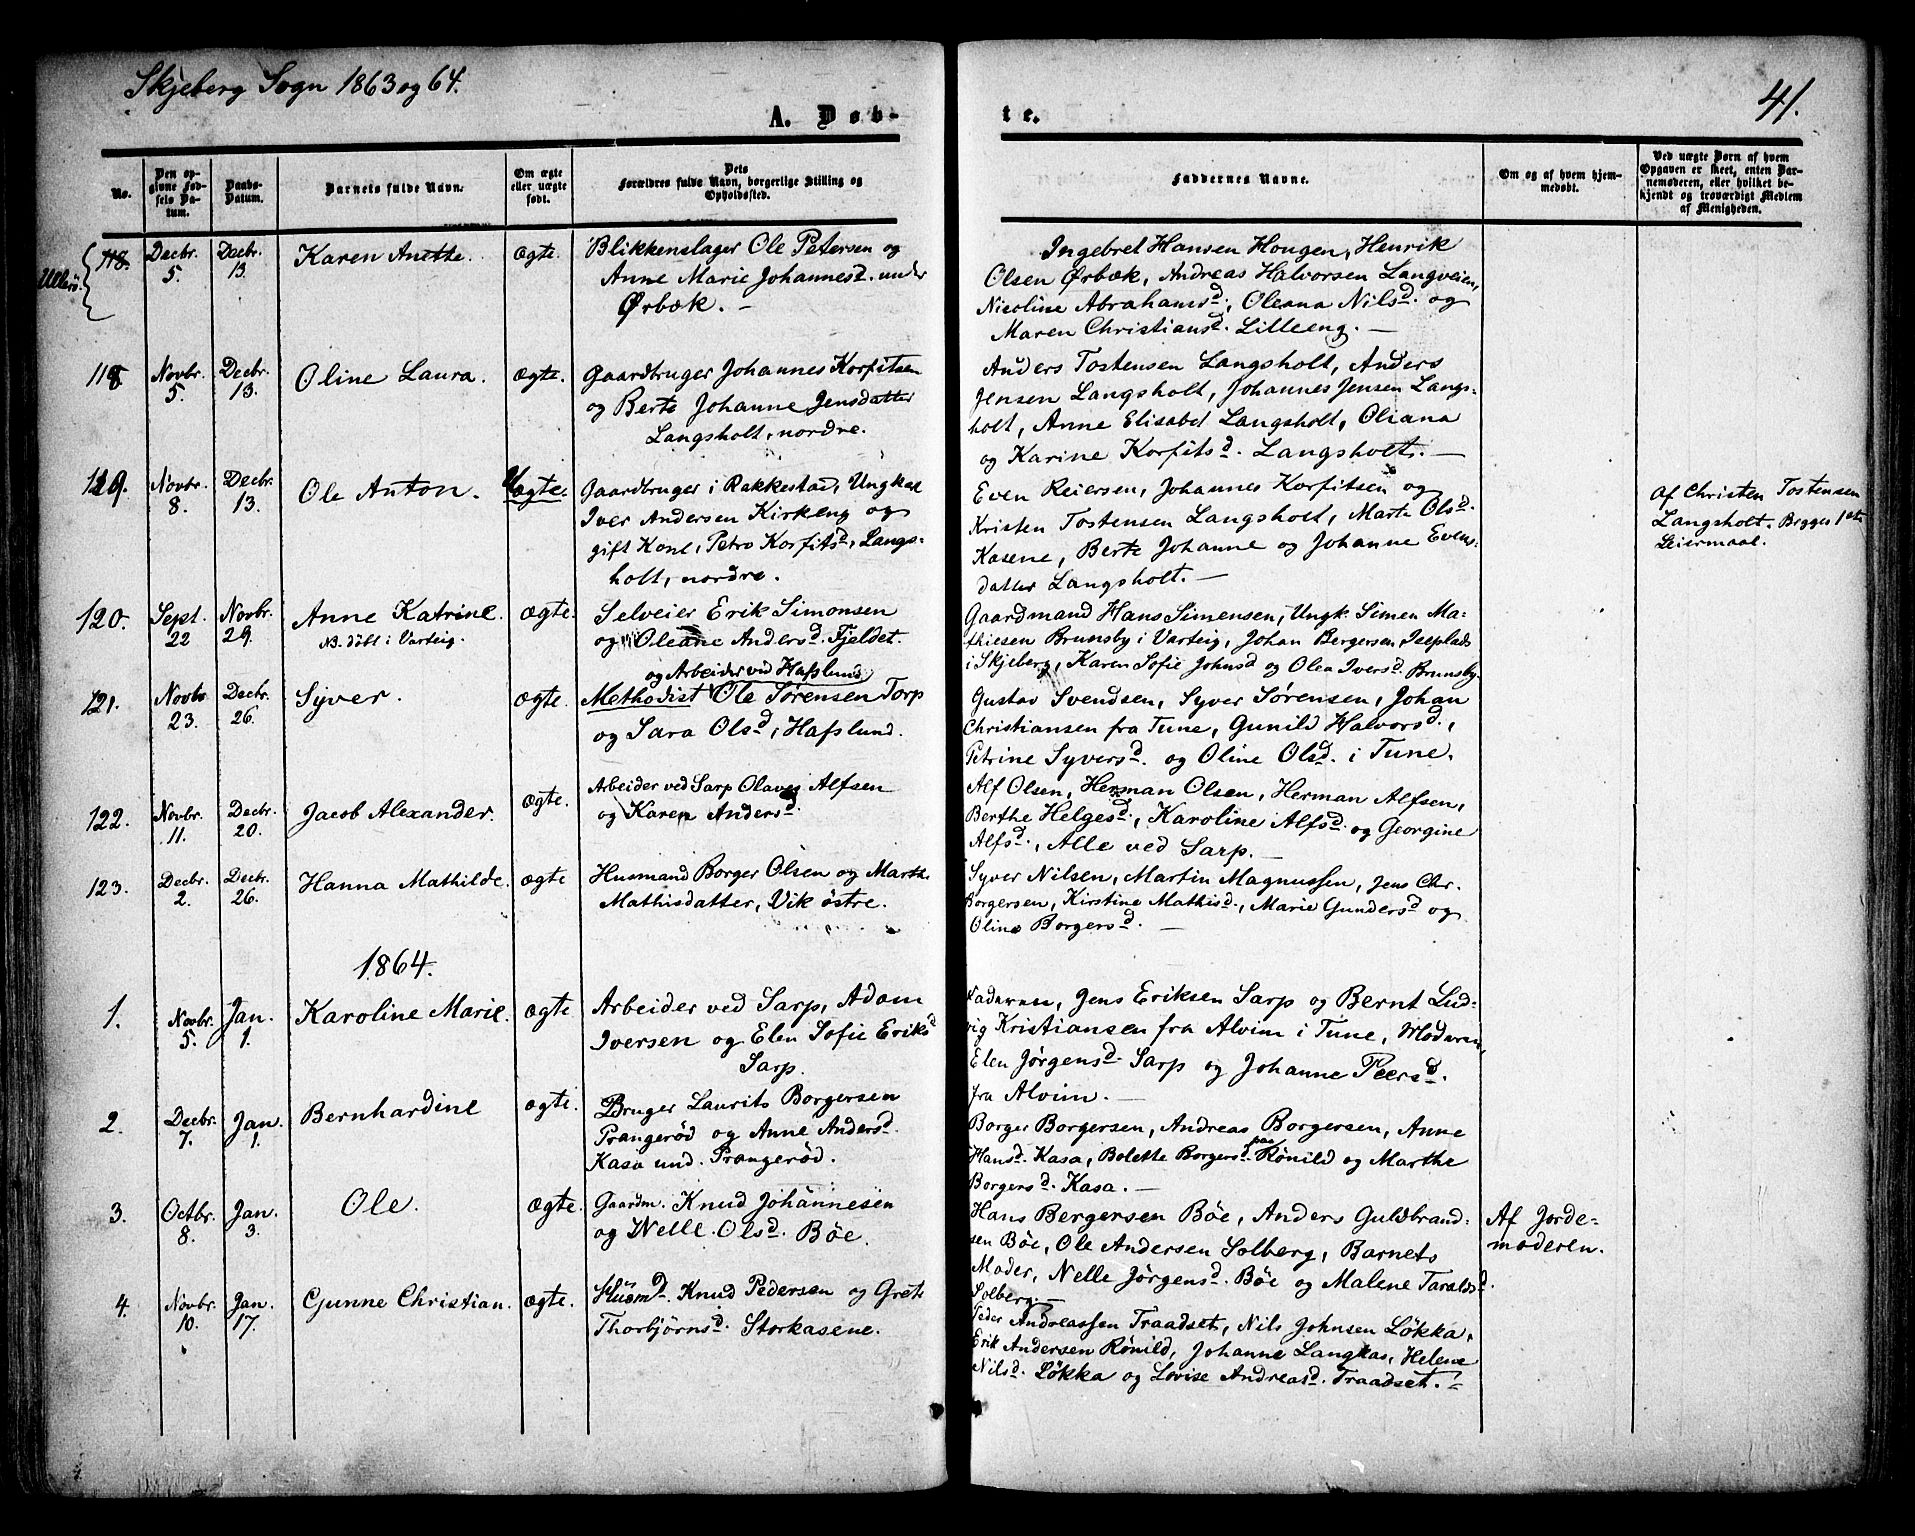 Skjeberg Sogn 1863 og 64.
41.
A. Døb-
te.
No.
Den op-
givne Fød-
sels Da-
tum.
Daabs-
Datum.
Barnets fulde Navn.
Om ægte
eller uægte
født.
Dets
Forældres fulde Navn, borgerlige Stilling og
Opholdssted.
Faddernes Navne.
Om og af hvem hjem-
medøbt.
Ved uægte Børn af hvem
Opgaven er skeet, enten Bar-
nemoderen, eller hvilket be-
kjendt og troværdigt Medlem
af Menigheden.
Ullerø.
118.
Decbr.
5.
Decbr.
13.
Karen Anette.
Ægte.
Blikkenslager Ole Petersen og
Anne Marie Johannesd. under
Ørbæk. —
Ingebret Hansen Hougen, Henrik
Olsen Ørbæk, Andreas Halvorsen Langveien,
Nicoline Abrahamsd., Oleana Nilsd. og
Maren Christiansd. Lilleeng. —
118.
Novbr.
5.
Decbr.
13.
Oline Laura.
Ægte.
Gaardbruger Johannes Korfitsen
og Berte Johanne Jensdatter
Langsholt, nordre.
Anders Tostensen Langsholt, Anders
Jensen Langsholt, Johannes Jensen Langs-
holt, Anne Elisabet Langsholt, Oliana
og Karine Korfitsd. Langsholt. —
119.
Novbr.
8.
Decbr.
13.
Ole Anton.
Uægte.
Gaardbruger i Rakkestad, Ungkal
Iver Andersen Kirkeng og
gift Kone, Petra Korfitsd., Langs-
holt, nordre.
Even Reiersen, Johannes Korfitsen og
Kristen Tostensen Langsholt, Marte Olsd.
Kasene, Berte Johanne og Johanne Evens-
datter Langsholt. —
Af Christen Tostensen
Langsholt. Begges 1ste
Leiermaal.
120.
Sept.
22
Novbr.
29.
Anne Katrine.
NB. døbt i Varteig.
Ægte.
Selveier Erik Simonsen
og Oleane Andersd. Fjeldet.
Gaardmand Hans Simensen, Ungk. Simen Ma-
thiesen Brunsby i Varteig, Johan Bergersen, Iseplads
i Skjeberg, Karen Sofie Johnsd og Olea Iversd. Brunsby.
121.
Novbr
23.
Decbr.
26.
Syver.
Ægte.
og Arbeider ved Hafslund
Methodist Ole Sørensen Torp
og Sara Olsd, Hafslund.
Gustav Svendsen, Syver Sørensen, Johan
Christiansen fra Tune, Gunild Halvorsd.,
Petrine Syversd. og Oline Olsd. i Tune.
122.
Novbr.
11.
Decbr.
20.
Jacob Alexander.
Ægte.
Arbeider ved Sarp Olaves Alfsen
og Karen Andersd.
Alf Olsen, Herman Olsen, Herman Alfsen,
Berthe Helgesd., Karoline Alfsd. og Georgine
Alfsd., Alle ved Sarp. —
123.
Decbr.
2.
Decbr.
26.
Hanna Mathilde.
Ægte
Husmand Borger Olsen og Marthe
Mathisdatter, Vik østre.
Syver Nilsen, Martin Magnussen, Jens Chr.
Borgersen, Kirstine Mathisd., Marie Gundersd og
Oline Borgersd. —
1864.
1.
Novbr.
5.
Jan.
1.
Karoline Marie.
Ægte
Arbeider ved Sarp, Adam
Iversen og Elen Sofie Eriksd
Sarp.
Faderen, Jens Eriksen Sarp og Bernt Lud-
vig Kristiansen fra Alvim i Tune, Moderen,
Elen Jørgensd. Sarp og Johanne Peersd.
fra Alvim. —
2.
Decbr.
7.
Jan.
1.
Bernhardine
Ægte.
Bruger Laurits Borgersen
Prangerød og Anne Andersd.
Kasa und. Prangerød.
Borger Borgersen, Andreas Borgersen, Anne
Hansd. Kasa, Bolette Borgersd. paa Rønild og Marthe
Borgersd. Kasa. —
3.
Octbr.
8.
Jan.
3.
Ole.
Ægte.
Gaardm. Knud Johannesen
og Nelle Olsd. Bøe.
Hans Bergersen Bøe, Anders Guldbrand-
sen Bøe, Ole Andersen Solberg, Barnets
Moder, Nelle Jørgensd. Bøe og Malene Taraldsd.
Solberg. —
Af Jorde-
moderen.
4.
Novbr.
10.
Jan.
17.
Gunne Christian.
Ægte.
Husmd. Knud Pedersen og Grete
Thorbjørnsd. Storkasene.
Peder Andreassen Traadset, Nils Johnsen Løkka,
Erik Andersen Rønild, Johanne Langkas, Helene
Nilsd. Løkka og Lovise Andreasd. Traadset. —